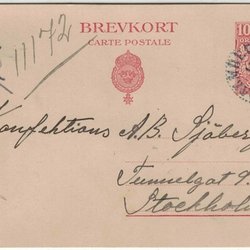 BREVKORT
CARTE POSTALE
10
11172
Konfektions A.B. Sjöberg
Tunnelgat
Stockholm